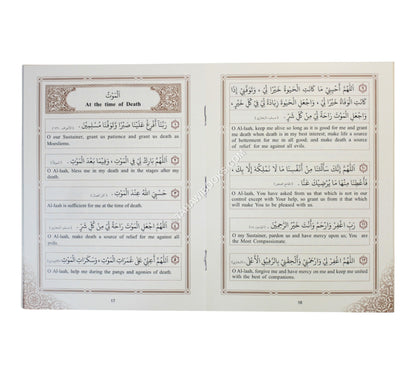 اَلْمَوْتُ
At the time of Death
رَبَّنَا أَفْرِغْ عَلَيْنَا صَبْرًا وَّتَوَفَّنَا مُسْلِمِيْنَ.
O our Sustainer, grant us patience and grant us death as
Moeslams.
اَللّٰهُمَّ بَارِكْ لِيْ فِي الْمَوْتِ، وَفِيْمَا بَعْدَ الْمَوْتِ.
O Al-laah, bless me in my death and in the stages after my
death.
حَسْبِيَ اللّٰهُ عِنْدَ الْمَوْتِ.
Al-laah is sufficient for me at the time of death.
اَللّٰهُمَّ اجْعَلِ الْمَوْتَ رَاحَةً لِّيْ مِنْ كُلِّ شَرٍّ.
O Al-laah, make death a source of relief for me against all
evils.
اَللّٰهُمَّ أَعِنِّيْ عَلٰى غَمَرَاتِ الْمَوْتِ، وَسَكَرَاتِ الْمَوْتِ.
O Al-laah, help me during the pangs and agonies of death.
17
اَللّٰهُمَّ أَحْيِنِيْ مَا كَانَتِ الْحَيٰوةُ خَيْرًا لِّيْ، وَتَوَفَّنِيْ إِذَا
كَانَتِ الْوَفَاةُ خَيْرًا لِّيْ، وَاجْعَلِ الْحَيٰوةَ زِيَادَةً لِّيْ فِيْ كُلِّ خَيْرٍ،
وَاجْعَلِ الْمَوْتَ رَاحَةً لِّيْ مِنْ كُلِّ شَرٍّ.
O Al-laah, keep me alive so long as it is good for me and grant
me death when death is in my best interest; make life a source
of betterment for me in all good; and make death a source
of relief for me against all evils.
اَللّٰهُمَّ إِنَّكَ سَأَلْتَنَا مِنْ أَنْفُسِنَا مَا لَا نَمْلِكُهٗ إِلَّا بِكَ،
فَأَعْطِنَا مِنْهَا مَا يُرْضِيْكَ عَنَّا.
O Al-laah, You have asked from us that which is not in our
control except with Your help, so grant us from it that which
will make You to be pleased with us.
رَبِّ اغْفِرْ وَارْحَمْ وَأَنْتَ خَيْرُ الرّٰحِمِيْنَ.
O my Sustainer, pardon us and have mercy upon us; You are
the Most Compassionate.
اَللّٰهُمَّ اغْفِرْ لِيْ وَارْحَمْنِيْ وَأَلْحِقْنِيْ بِالرَّفِيْقِ الْأَعْلٰى.
O Al-laah, forgive me and have mercy on me and keep me united
with the best of companions.
18